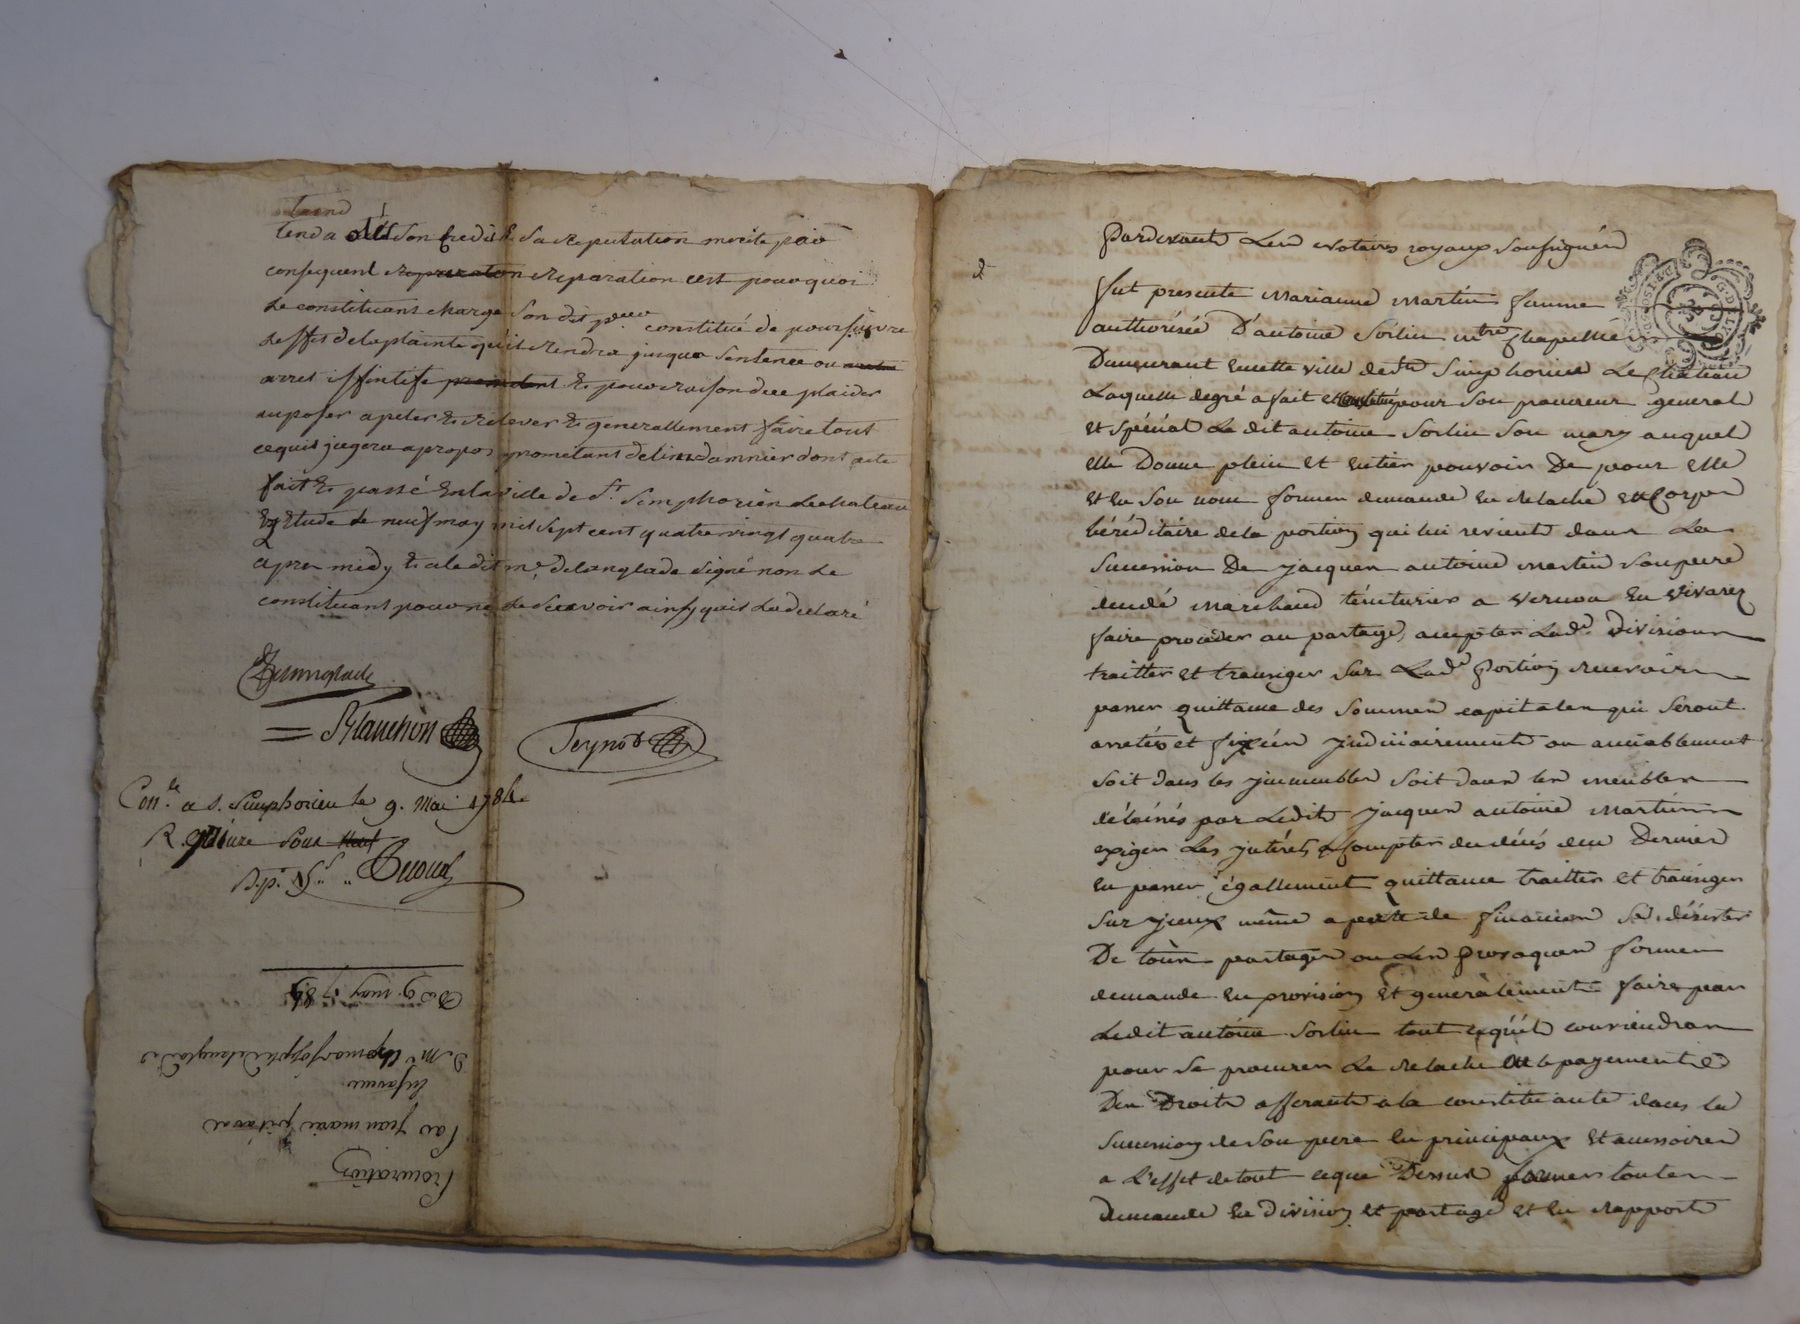 tend a oté son credit & sa reputation merite par
consequent reparation reparation cest pourquoi
Le constituant charge son dit preur constitué de poursuivre
Leffet de la plainte quil rendra jusqua sentence ou
arret iffinitife & pour raison dece plaider
oposer apeler & relever & generallement faire tout
cequil jugera apropos prometant delindamnier dont acte
fait & passé en la ville de St. Simphorien Lechateau
& Etude le neuf may mil sept cent quatre vingt quatre
apres midy & a le dit me. delanglade signé non Le
constituant pour ne le scavoir ainsy quil La declaré
Delanglade
Blanchon
Teynod
Con.le a s. Simphorien le 9. Mai 1784.
R. quinze sous
Procuration
par jean marie
D. 9. may 1784
Pardevant Les notaires royaux soussignés
fut presente Marianne Martin femme
authorisée D'antoine Sorlin mtre chapellier
Demeurant en cette ville de St Simphorien Le Chateau
Laquelle de gré a fait et constitué pour son procureur general
et spécial Le dit antoine Sorlin son mary auquel
elle Donne plein et entier pouvoir De pour elle
et en son nom former demande en relache en corps
héréditaire de la portion qui lui revient dans La
succession De jacques antoine Martin son pere
decedé marchand teinturier a vernou en vivarez
faire proceder au partage, accepter Lade. Divisions
traitter et transiger sur Lade portion recevoir
passer quittance des sommes capitales qui seront
arretés et fixées judiciairement ou amiablement
soit dans les jmmeubles soit dans les meubles
délaissés par Ledit jacques antoine Martin
exiger Les jntérêts a compter du décés de ce Dernier
en passer également quittance traitter et transiger
sur jceux même a perte de finances se désister
De tous partages ou Les provoquer former
demande en provision Et généralement faire par
Ledit antoine Sorlin tout ce qu'il conviendra
pour se procurer Le relache ou le payement
Des Droits afferants a la constituante dans la
succession de son pere en principaux et accessoires
a L'effet de tout ce que Dessus former toutes
demande en division et partage et en rapport